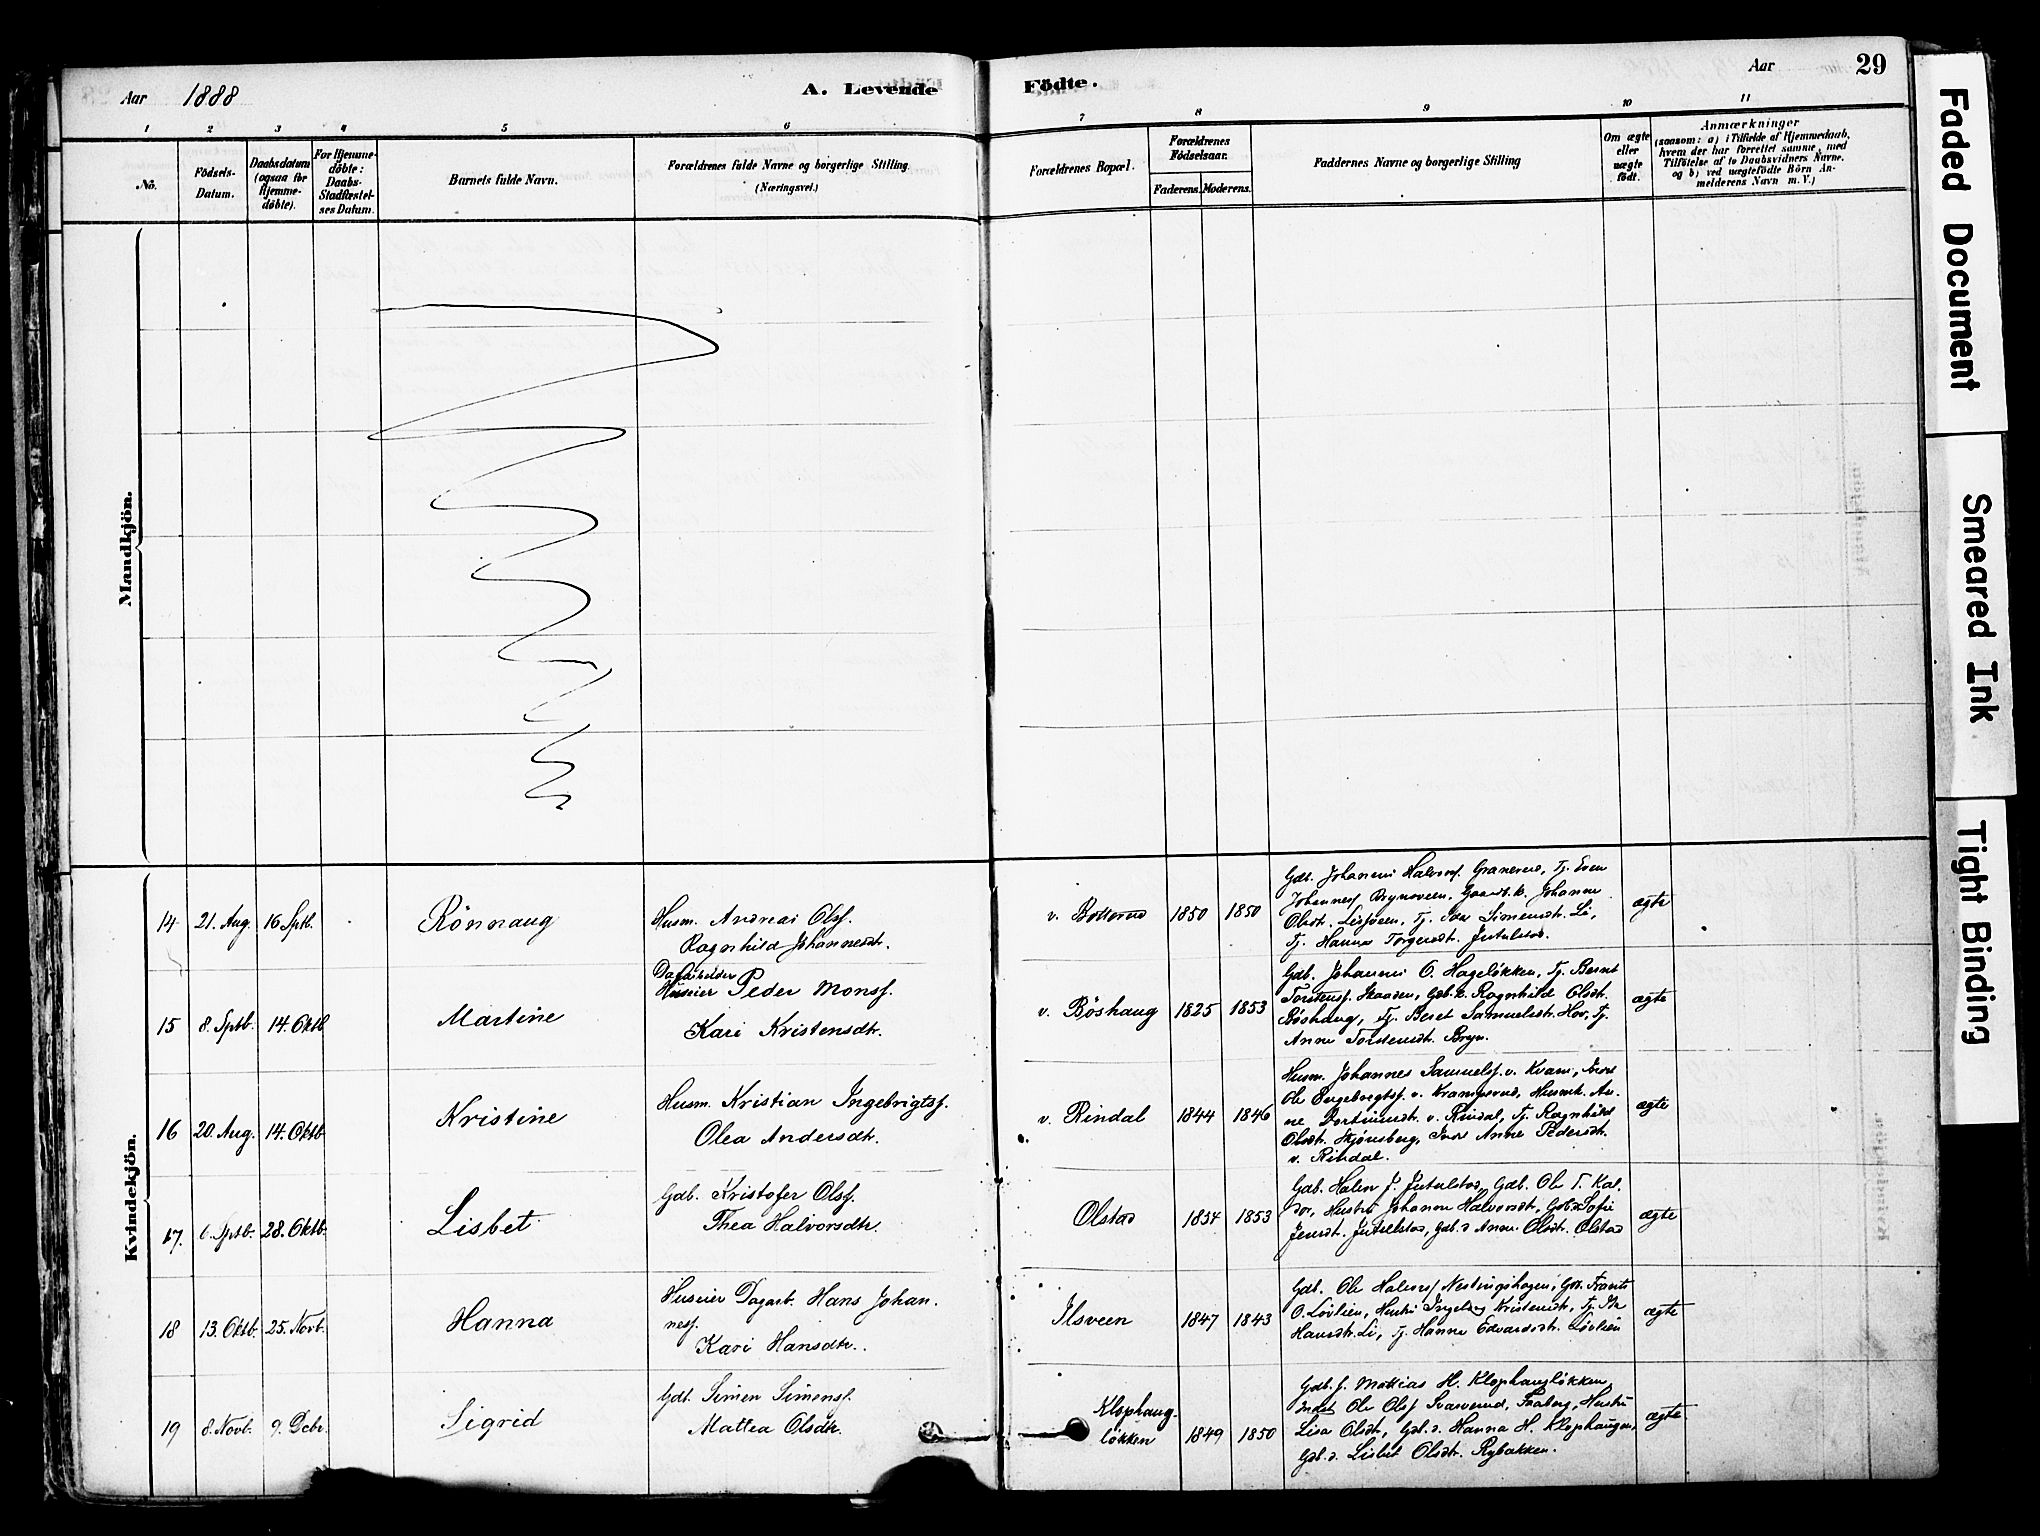 Aar 1888
A. Levende Födte.
Aar
29
1 2 3 4 5 6 7 8 9 10 11
No.
Födsels-
Datum.
Daabsdatum
(ogsaa for
Hjemme-
döbte).
For Hjemme-
döbte:
Daabs-
Stadfæstel-
ses Datum.
Barnets fulde Navn.
Forældrenes fulde Navne og borgerlige Stilling
(Næringsvei.)
Forældrenes Bopæl.
Forældrenes
Födselsaar.
Faderens. Moderens.
Faddernes Navne og borgerlige Stilling
Om ægte
eller
uægte
födt.
Anmærkninger
(saasom: a) i Tilfælde af Hjemmedaab,
hvem der har forrettet samme, med
Tilföielse af to Daabsvidners Navne.
og b) ved uægtefödte Börn An-
melderens Navn m. V.)
Mandkjön.
Kvindekjön.
14 21. Aug. 16 Sptb. Rönnaug
Husm. Andreas Olsf.
Ragnhild Johannesdt.
v. Botterud 1850 1850
Gdb. Johannes Halvorsf. Granerud, Tj. Even
Johannesf. Brynsveen, Gaardk. Johanne
Olsdt. Lisjveen, Tj. Simensdt. Li,
Tj. Hanna Torgersdt. Jutulstad.
ægte
15 8. Sptb. 14. Oktb Martine
Dagarbeider
Huseier Peder Monsf.
Kari Kristensdtr.
v. Böshaug 1825 1853
Gdb. Johannes O. Hageløkken, Tj. Bernt
Torstensf. Skaaden, Gdb.k. Ragnhild Olsdt.
Böshaug, Tj. Beret Samuelsdt. Hov, Tj.
Anne Torstensdt. Bryn.
ægte
16 20. Aug. 14. Oktb Kristine
Husm. Kristian Ingebrigtsf.
Olea Andersdtr.
v. Rindal 1844 1846
Husm. Johannes Samuelsf. v. Kvam,
Ole Engebrigtsf. v. Kramperud, Husmk. An-
ne v. Rindal, Tj. Ragnhild
Olsdt. Skjønsberg, Anne Pedersdt.
v. Rindal.
ægte
17. 6. Sptb. 28. Oktb. Lisbet
Gdb. Kristofer Olsf.
Thea Halvorsdtr.
Olstad 1854 1853
Gdb. Halvor J. Jutulstad, Gdb. Ole T. Kal-
dor, Hustru Johanne Halvorsdt, Gdb.d Sofie
Jensdt. Jutulstad, Gdb.d Anne Olsdt. Olstad
ægte
18 13. Oktb. 25. Novb. Hanna
Huseier Dagarb. Hans Johan-
nesf.
Kari Hansdtr.
Ilsveen 1847 1843
Gdb. Ole Halvorsf Nestingshagen, Gdb. Frants
O. Lövlien, Hustru Ingeborg Kristensdt, Tj. Ida
Hansdt. Li, Tj. Hanna Edvardsdt. Lövlien
ægte
19 8. Novb. 9. Debr. Sigrid
Gdb. Simen Simensf.
Mathea Olsdtr.
Klophaug-
løkken 1849 1850
Gdb.f. Mattias H. Klophaugløkken,
Indst Ole Olsf Svarverud, Faaberg, Hustru
Lisa Olsdt, Gdb.d. Hanna H. Klophaugen,
Gdb.d. Lisbet Olsdt. Rybakken.
ægte
Faded Document
Smeared Ink
Tight Binding